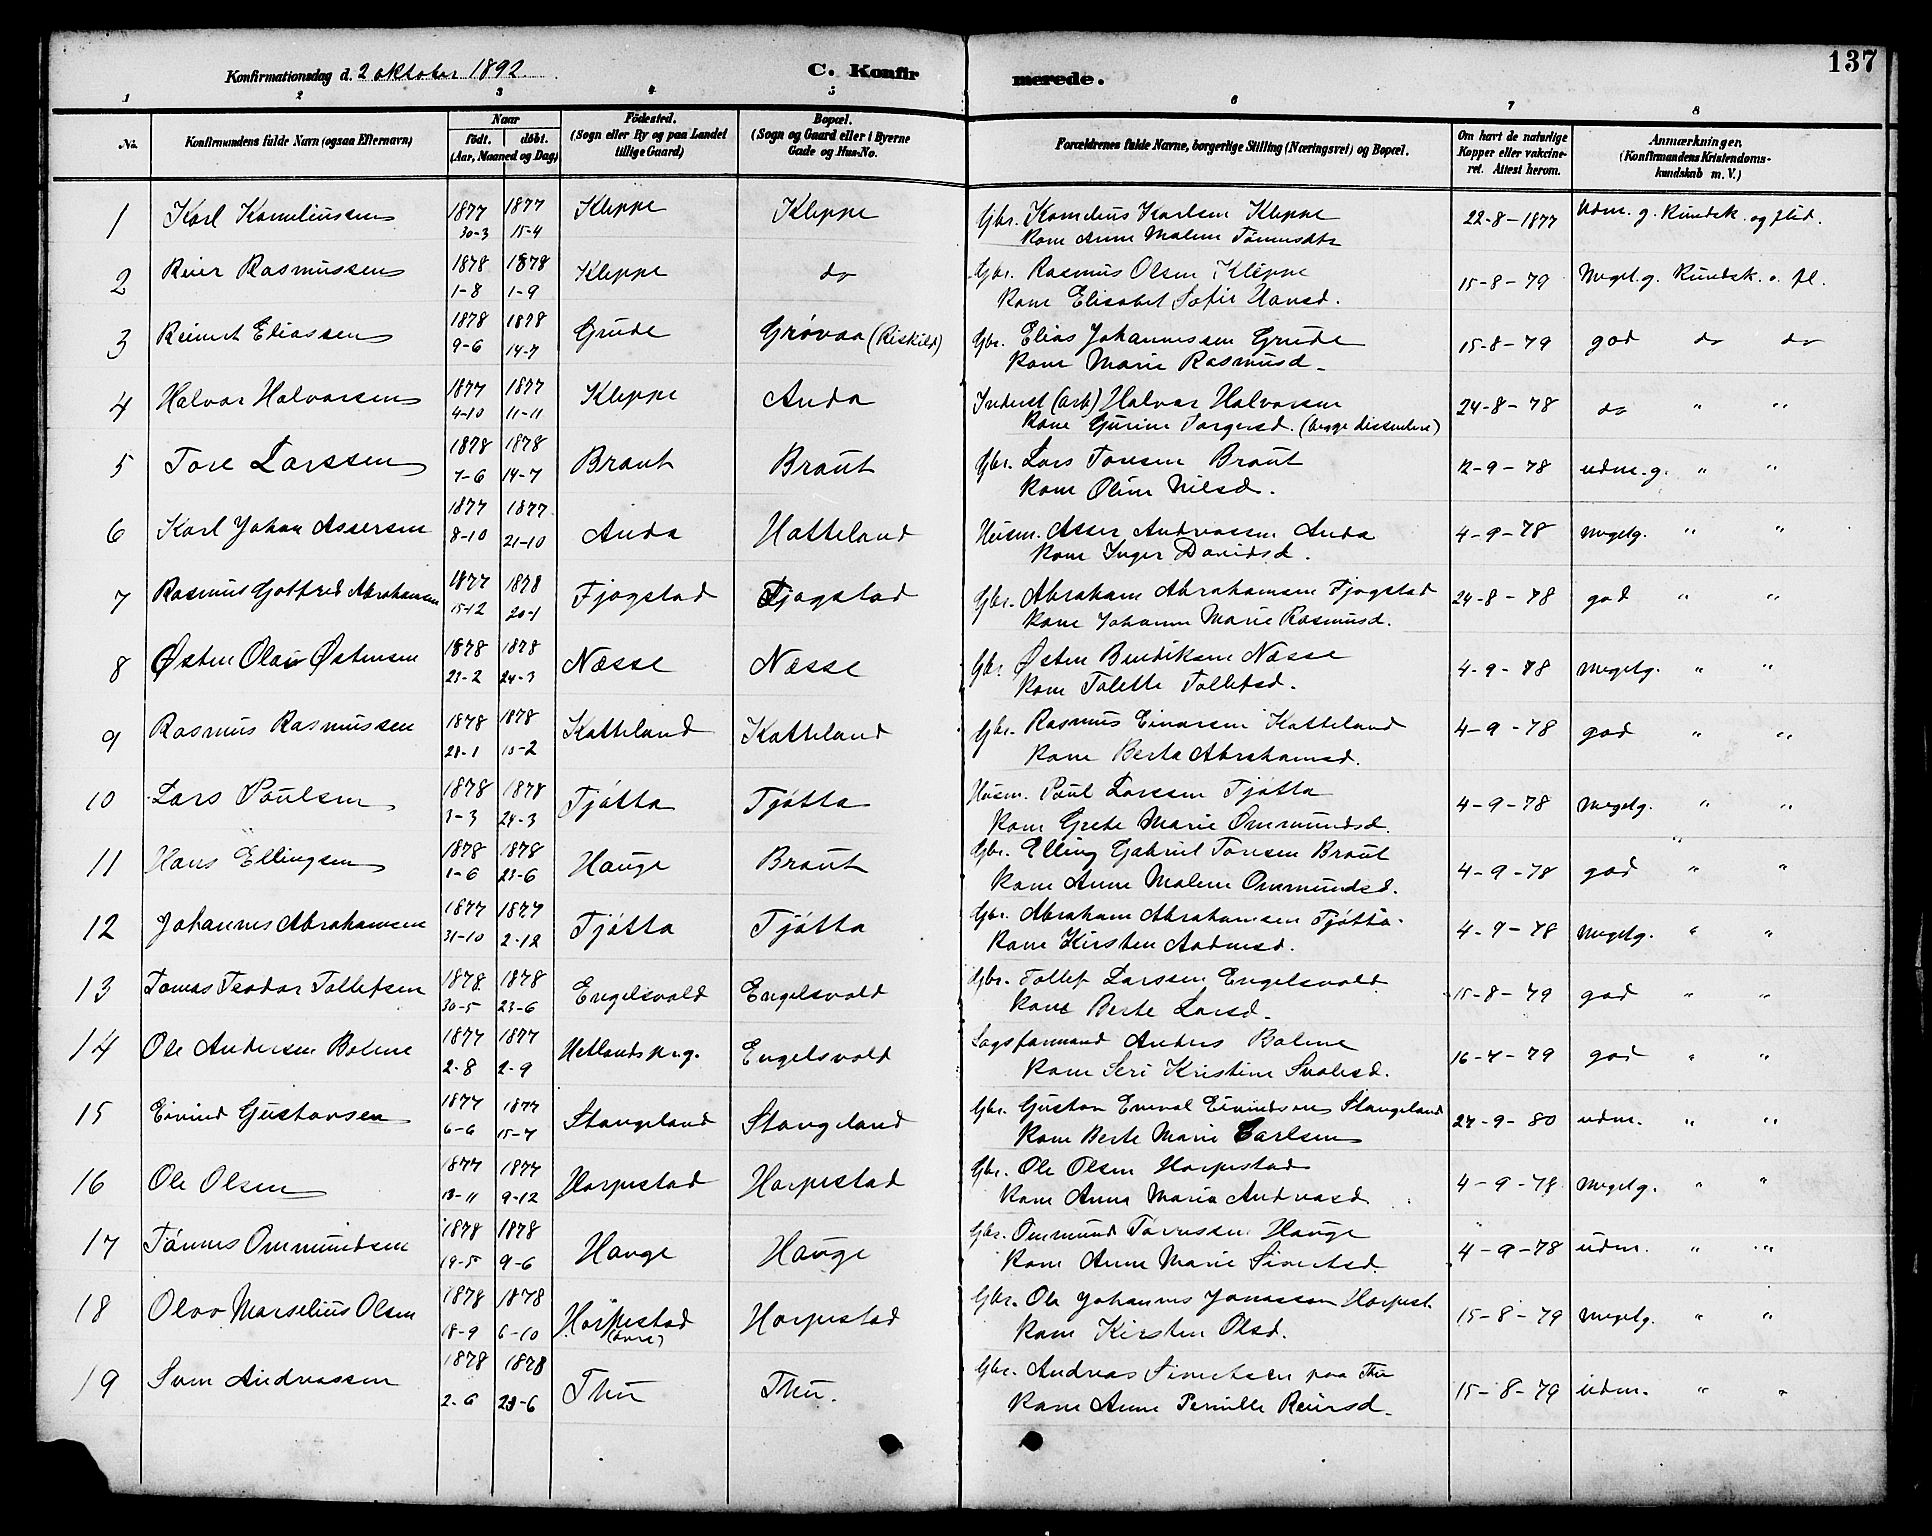 137
Konfirmationsdag d. 2 oktober 1892. C. Konfirmerede.
1 2 3 4 5 6 7 8
No. Konfirmandens fulde Navn (ogsaa Efternavn) Naar födt. döbt. (Aar, Maaned og Dag) Födested. (Sogn eller By og paa Landet tillige Gaard) Bopæl. (Sogn og Gaard eller i Byerne Gade og Hus-No. Forældrenes fulde Navne, borgerlige Stilling (Næringsvei) og Bopæl. Om havt de naturlige Kopper eller vakcineret. Attest herom. Anmærkninger. (Konfirmandens Kristendomskundskab m. V.)
1 Karl Korneliussen 1877 30-3 1877 15-4 Kleppe Kleppe Gbr. Kornelius Karlsen Kleppe 22-8-1877 Udm. g. Kundsk. og flid.
Kone Anne Malene Tønnesdtr
2 Reier Rasmussen 1878 1-8 1878 1-9 Kleppe do Gbr. Rasmus Olsen Kleppe 15-8-79 Meget g. Kundsk. o. fl.
Kone Elisabet Sofie Hansd.
3 Reinert Eliassen 1878 9-6 1878 14-7 Grude Grøvaa (Riskild) Gbr. Elias Johannessen Grude 15-8-79 god do do
Kone Marie Rasmusd.
4 Halvar Halvarsen 1877 4-10 1877 11-11 Kleppe Anda Inderst (arb) Halvar Halvorsen 24-8-78 do " "
Kone Gurine Torgersd. (begge dissentere)
5 Tore Larssen 1878 7-6 1878 14-7 Braut Braut Gbr. Lars Toresen Braut 12-9-78 udm. g. " "
Kone Oline Nilsd.
6 Karl Johan Assersen 1877 8-10 1877 21-10 Anda Hatteland Husm. Asser Andreassen Anda 4-9-78 Megetg. " "
Kone Inger Davidsd.
7 Rasmus Gotfred Abrahamsen 1877 15-12 1878 20-1 Fjogstad Fjogstad Gbr. Abraham Abrahamsen Fjogstad 24-8-78 god " "
Kone Johanne Marie Rasmusd.
8 Østen Olai Østensen 1878 23-2 1878 24-3 Næsse Næsse Gbr. Østen Bendiksen Næsse 4-9-78 Megetg. " "
Kone Tolette Tollefsd.
9 Rasmus Rasmussen 1878 28-1 1878 10-2 Katteland Katteland Gbr. Rasmus Einarsen Katteland 4-9-78 god " "
Kone Berta Abrahamsd.
10 Lars Paulsen 1878 3-3 1878 24-3 Tjøtta Tjøtta Husm. Paul Larssen Tjøtta 4-9-78 Megetg. " "
Kone Grete Marie Ommundsd.
11 Hans Ellingsen 1878 1-6 1878 23-6 Hauge Braut Gbr. Elling Gabriel Toresen Braut 4-9-78 god " "
Kone Anne Malene Ommundsd.
12 Johannes Abrahamsen 1877 31-10 1877 2-12 Tjøtta Tjøtta Gbr. Abraham Abrahamsen Tjøtta. 4-9-78 Megetg. " "
Kone Kirsten Aadnesd.
13 Tomas Teodor Tollefsen 1878 30-5 1878 23-6 Engelsvold Engelsvold Gbr. Tollef Larssen Engelsvold 15-8-79 god " "
Kone Berte Larsd.
14 Ole Andersen Bolme 1877 2-8 1877 2-9 Hetlands prg. Engelsvold Sagsformand Anders Bolme 16-7-79 god " "
Kone Seri Kristine Svalesd.
15 Eivind Gustavsen 1877 6-6 1877 15-7 Stangeland Stangeland Gbr. Gustav Enevald Eivindsen Stangeland 27-9-80 udm. " "
Kone Berte Marie Carlsen
16 Ole Olsen 1877 18-11 1877 9-12 Horpestad Horpestad Gbr. Ole Olsen Horpestad 4-9-78 Megetg. " "
Kone Anna Maria Andreasd.
17 Tønnes Ommundsen 1878 19-5 1878 9-6 Hauge Hauge Gbr. Ommund Tønnesen Hauge 4-9-78 udm. " "
Kone Anne Marie Sivertsd.
18 Olav Marselius Olsen 1878 18-9 1878 6-10 Horpestad (øvre) Horpestad Gbr. Ole Johannes Jonassen Horpest. 15-8-79 Megetg. " "
Kone Kirsten Olsd.
19 Sven Andreassen 1878 2-6 1878 23-6 Thu Thu. Gbr. Andreas Sivertsen paa Thu 15-8-79 udm. " "
Kone Anne Pernille Reiersd.